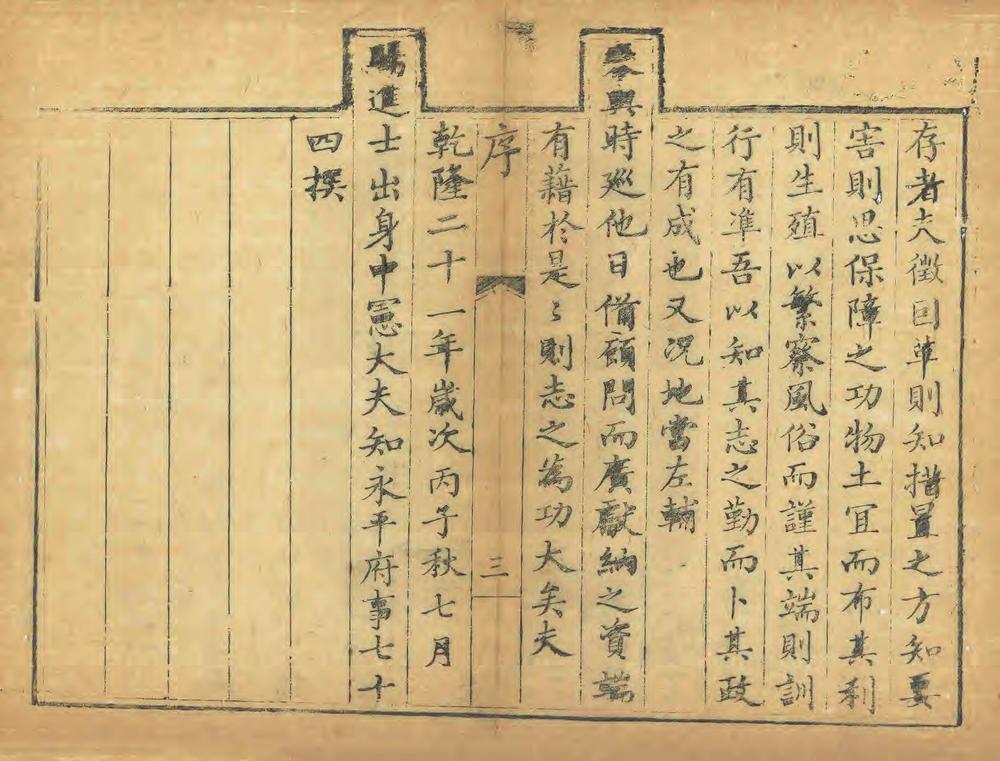 存者大徵因革則知措置之方知要
害則思保障之功物土宜而布其利
則生殖以繁察風俗而謹其端則訓
行有準吾以知其志之勤而卜其政
之有成也又况地當左輔
輿時廵他日俻顧問而廣獻納之資端
有藉於是〻則志之為功大矣夫
序
三
乾隆二十一年嵗次丙子秋七月
賜進士出身中憲大夫知永平府事七十
四撰